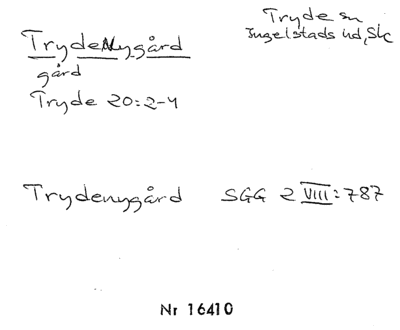 Trydenygård
Tryde sn
Ingelstads hd, Sk
gård
Tryde 20:2-4
Trydenygård SGG 2 VIII:787
Nr 16410